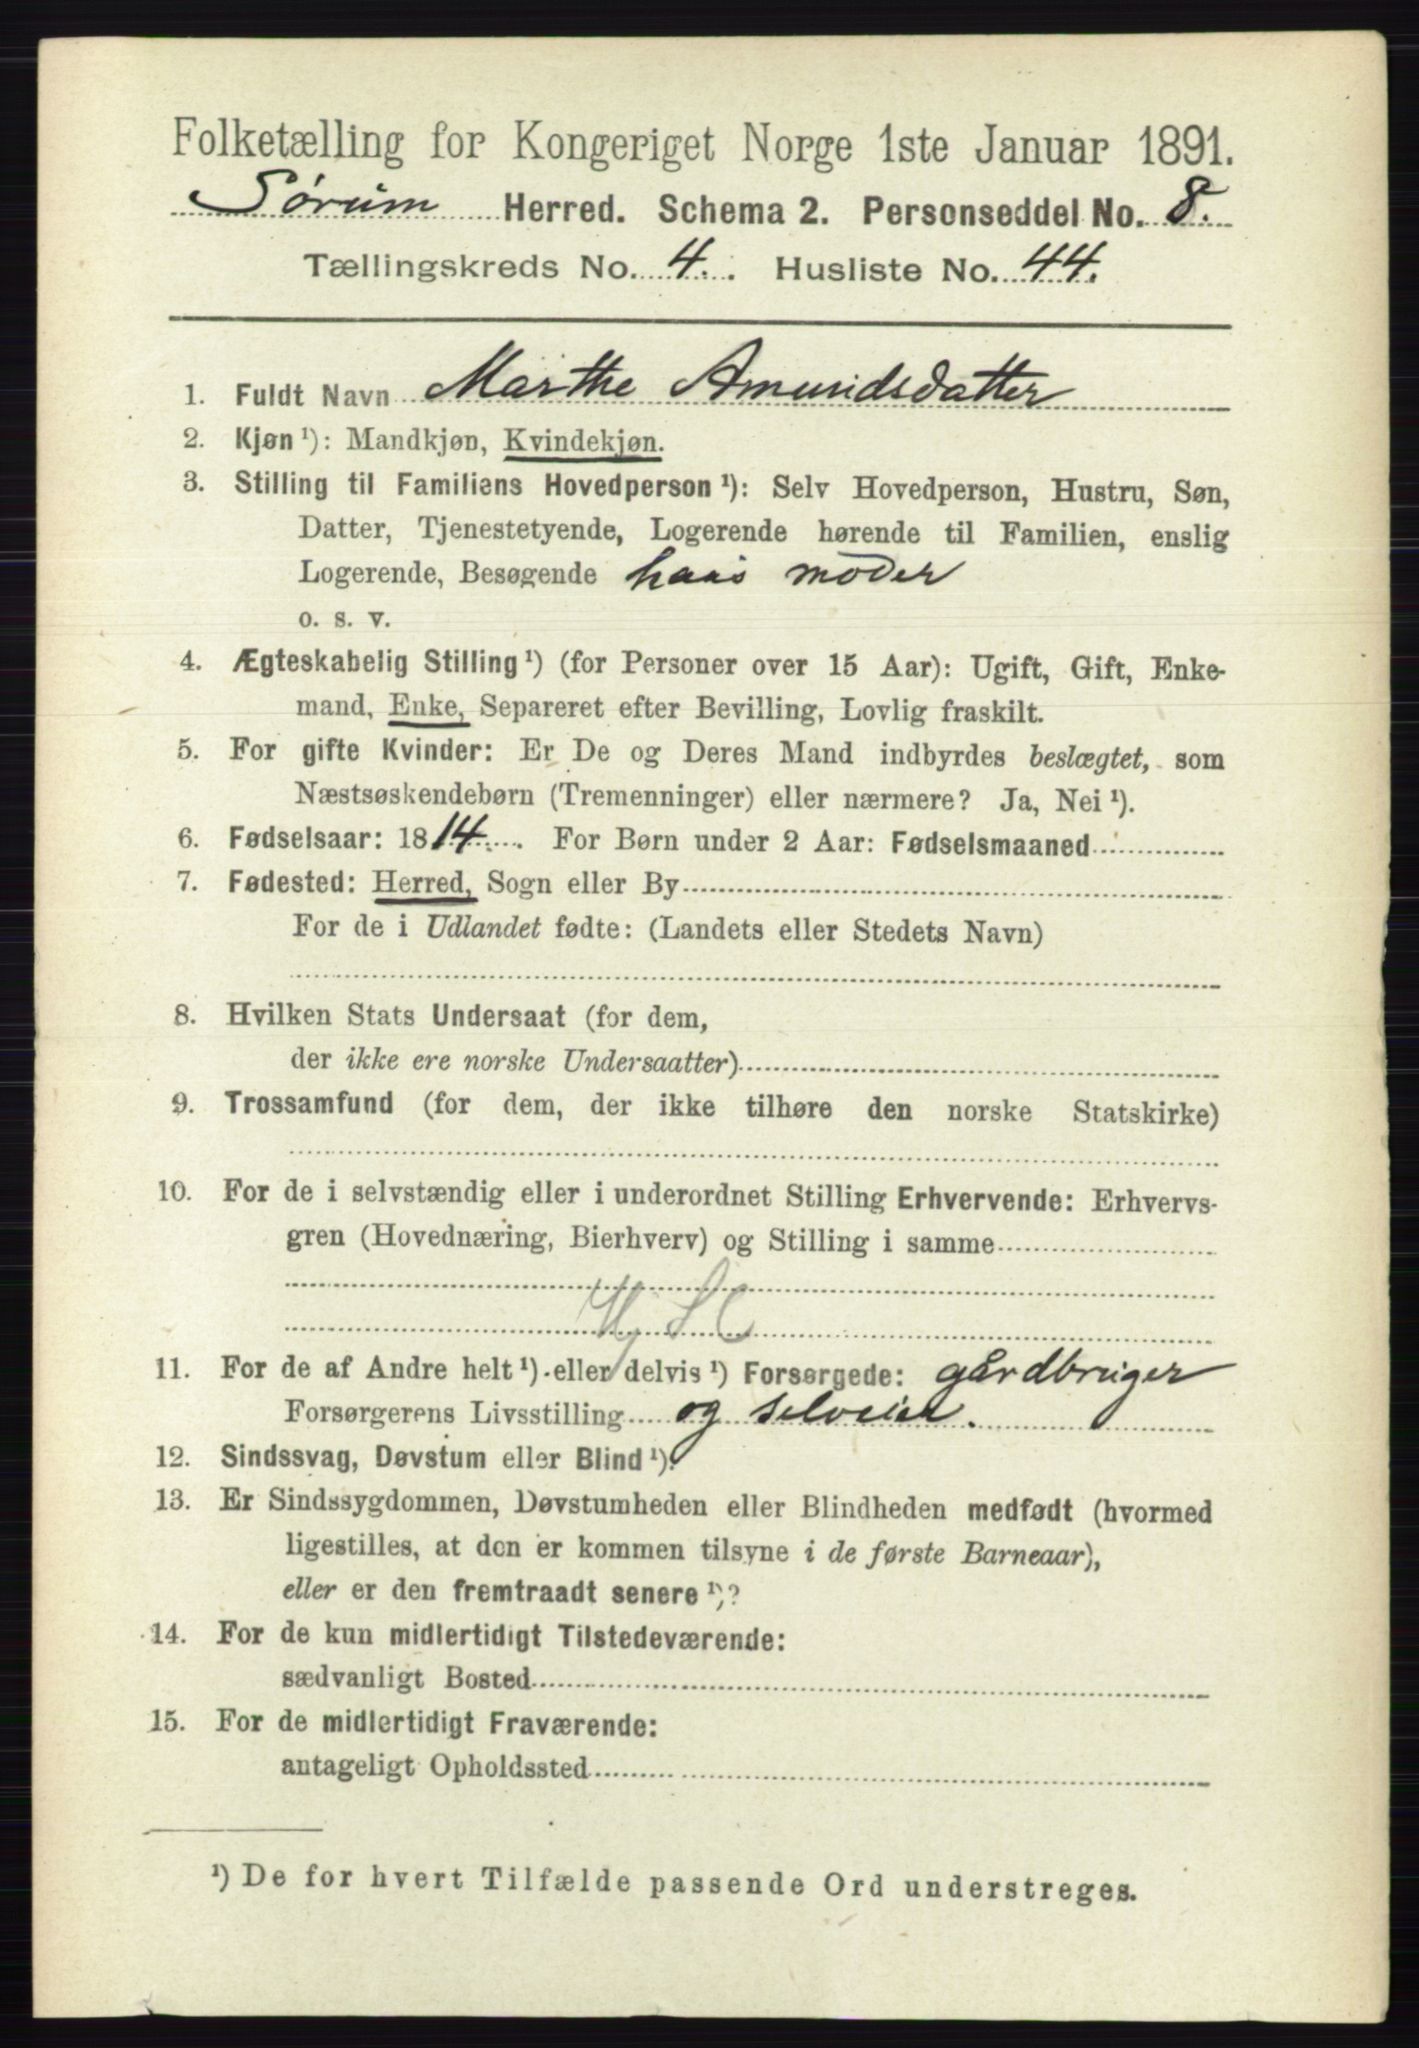 Folketælling for Kongeriget Norge 1ste Januar 1891.
Sørum Herred. Schema 2. Personseddel No. 8.
Tællingskreds No. 4. Husliste No. 44.
1. Fuldt Navn Marthe Amundsdatter
2. Kjøn ¹): Mandkjøn, Kvindekjøn.
3. Stilling til Familiens Hovedperson ¹): Selv Hovedperson, Hustru, Søn,
Datter, Tjenestetyende, Logerende hørende til Familien, enslig
Logerende, Besøgende hans moder
o. s. v.
4. Ægteskabelig Stilling ¹) (for Personer over 15 Aar): Ugift, Gift, Enke-
mand, Enke, Separeret efter Bevilling, Lovlig fraskilt.
5. For gifte Kvinder: Er De og Deres Mand indbyrdes beslægtet, som
Næstsøskendebørn (Tremenninger) eller nærmere? Ja, Nei ¹).
6. Fødselsaar: 1814. For Børn under 2 Aar: Fødselsmaaned
7. Fødested: Herred, Sogn eller By
For de i Udlandet fødte: (Landets eller Stedets Navn)
8. Hvilken Stats Undersaat (for dem,
der ikke ere norske Undersaatter)
9. Trossamfund (for dem, der ikke tilhøre den norske Statskirke)
10. For de i selvstændig eller i underordnet Stilling Erhvervende: Erhvervs-
gren (Hovednæring, Bierhverv) og Stilling i samme
11. For de af Andre helt ¹) eller delvis ¹) Forsørgede: gårdbruger
Forsørgerens Livsstilling og selveier.
12. Sindssvag, Døvstum eller Blind ¹).
13. Er Sindssygdommen, Døvstumheden eller Blindheden medfødt (hvormed
ligestilles, at den er kommen tilsyne i de første Barneaar),
eller er den fremtraadt senere ¹)?
14. For de kun midlertidigt Tilstedeværende:
sædvanligt Bosted
15. For de midlertidigt Fraværende:
antageligt Opholdssted
¹) De for hvert Tilfælde passende Ord understreges.